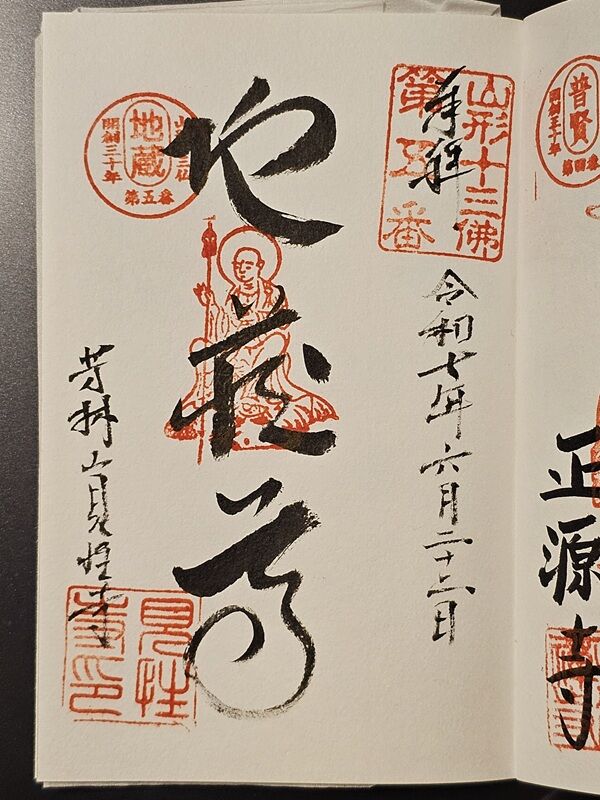 普賢
開創三十年
第四番
正源寺
山形十三佛
第五番
奉拝
令和七年六月二十二日
地蔵尊
地蔵
開創三十年
第五番
芳林山見性寺
見性
寺印